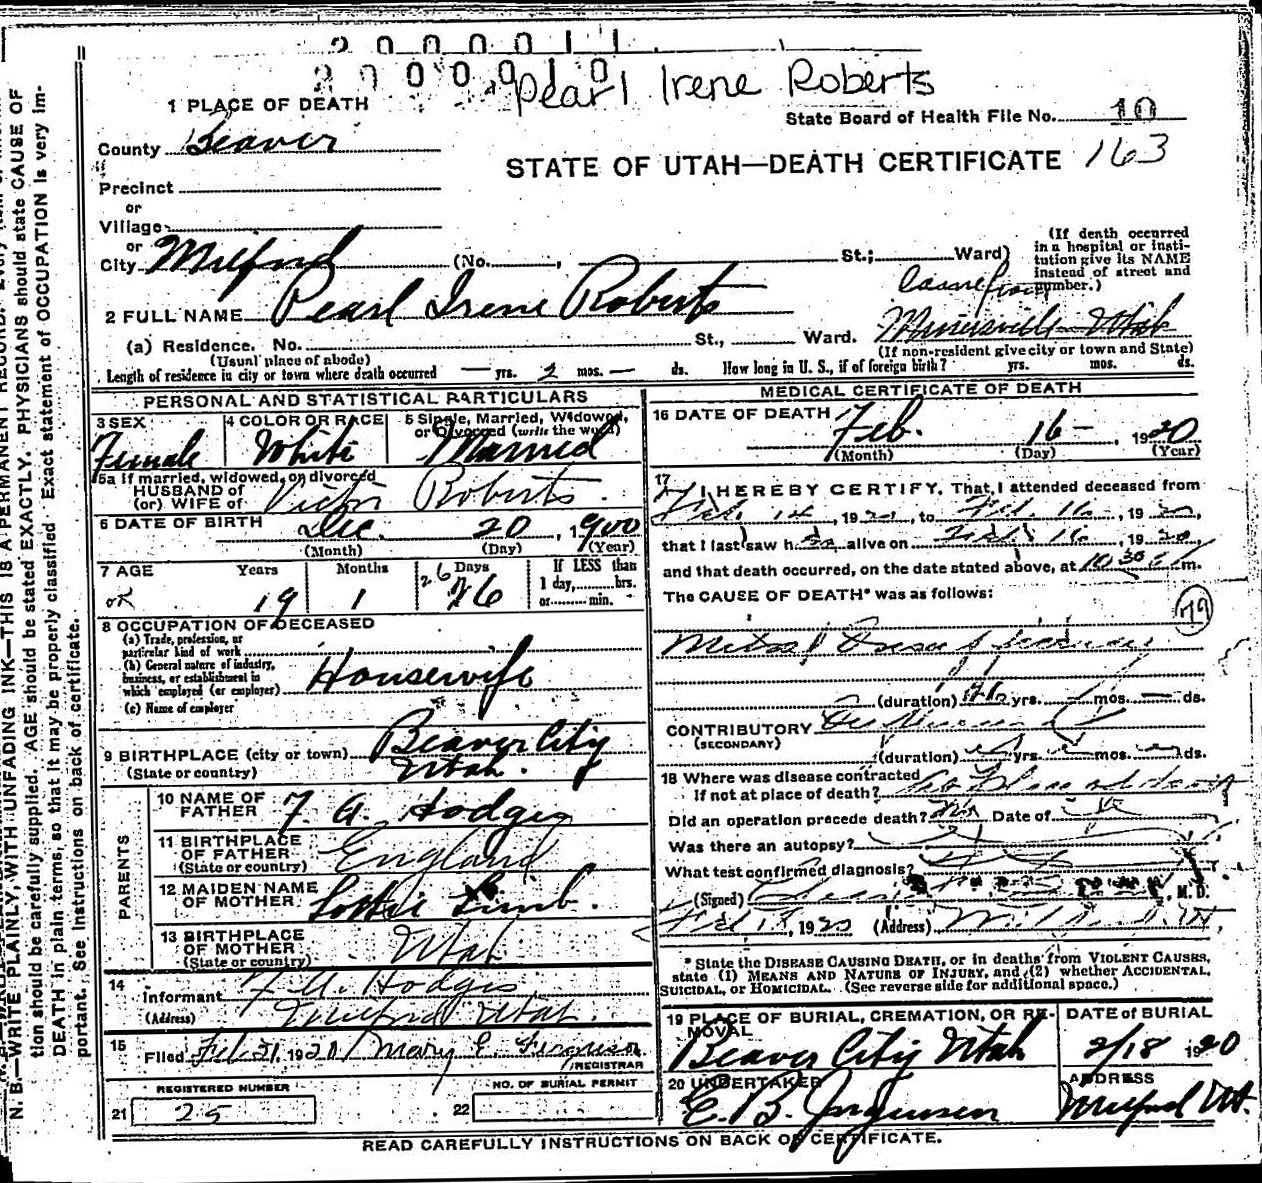 2000011
2000010
Pearl Irene Roberts
1 PLACE OF DEATH
State Board of Health File No. 10
County Beaver
STATE OF UTAH—DEATH CERTIFICATE 163
Precinct
or
Village
or
City Milford (No. , St.; Ward)
(If death occurred in a hospital or institution give its NAME instead of street and number.)
came from
2 FULL NAME Pearl Irene Roberts
(a) Residence. No. St., Ward. Minersville Utah
(Usual place of abode)
(If non-resident give city or town and State)
Length of residence in city or town where death occurred — yrs. 2 mos. — ds. How long in U. S., if of foreign birth? yrs. mos. ds.
PERSONAL AND STATISTICAL PARTICULARS
3 SEX Female
4 COLOR OR RACE White
5 Single, Married, Widowed, or Divorced (write the word) Married
5a If married, widowed, or divorced
HUSBAND of
(or) WIFE of Victor Roberts.
6 DATE OF BIRTH Dec. 20, 1900
(Month) (Day) (Year)
7 AGE Years Months Days If LESS than
1 day, hrs.
or min.
OK 19 1 26 26
8 OCCUPATION OF DECEASED
(a) Trade, profession, or particular kind of work
(b) General nature of industry, business, or establishment in which employed (or employer) Housewife
(c) Name of employer
9 BIRTHPLACE (city or town) Beaver City
(State or country) Utah.
PARENTS
10 NAME OF FATHER F. A. Hodges
11 BIRTHPLACE OF FATHER (State or country) England
12 MAIDEN NAME OF MOTHER Lottie Limb.
13 BIRTHPLACE OF MOTHER (State or country) Utah
14 Informant F. A. Hodges
(Address) Milford Utah.
15 Filed Feb 21, 1920 Mary E. Ferguson
REGISTRAR
REGISTERED NUMBER NO. OF BURIAL PERMIT
21 25 22
MEDICAL CERTIFICATE OF DEATH
16 DATE OF DEATH Feb. 16 — , 1920
(Month) (Day) (Year)
17
I HEREBY CERTIFY, That I attended deceased from
Feb. 14, 1920, to Feb. 16, 1920,
that I last saw her alive on Feb. 16, 1920,
and that death occurred, on the date stated above, at 10.30 m.
The CAUSE OF DEATH* was as follows:
79
Mitral
(duration) yrs. mos. — ds.
CONTRIBUTORY
(SECONDARY)
(duration) yrs. mos. ds.
18 Where was disease contracted
If not at place of death?
Did an operation precede death? No Date of
Was there an autopsy?
What test confirmed diagnosis?
(Signed) , M. D.
Feb 18, 1920 (Address) Milford Ut
* State the DISEASE CAUSING DEATH, or in deaths from VIOLENT CAUSES,
state (1) MEANS AND NATURE OF INJURY, and (2) whether ACCIDENTAL,
SUICIDAL, or HOMICIDAL. (See reverse side for additional space.)
19 PLACE OF BURIAL, CREMATION, OR REMOVAL DATE of BURIAL
Beaver City Utah 2/18 1920
20 UNDERTAKER ADDRESS
C. B. Jorgensen Milford Ut.
READ CAREFULLY INSTRUCTIONS ON BACK OF CERTIFICATE.
N. B.—WRITE PLAINLY, WITH UNFADING INK—THIS IS A PERMANENT RECORD. Every
tion should be carefully supplied. AGE should be stated EXACTLY. PHYSICIANS should state CAUSE OF
DEATH in plain terms, so that it may be properly classified. Exact statement of OCCUPATION is very im-
portant. See instructions on back of certificate.